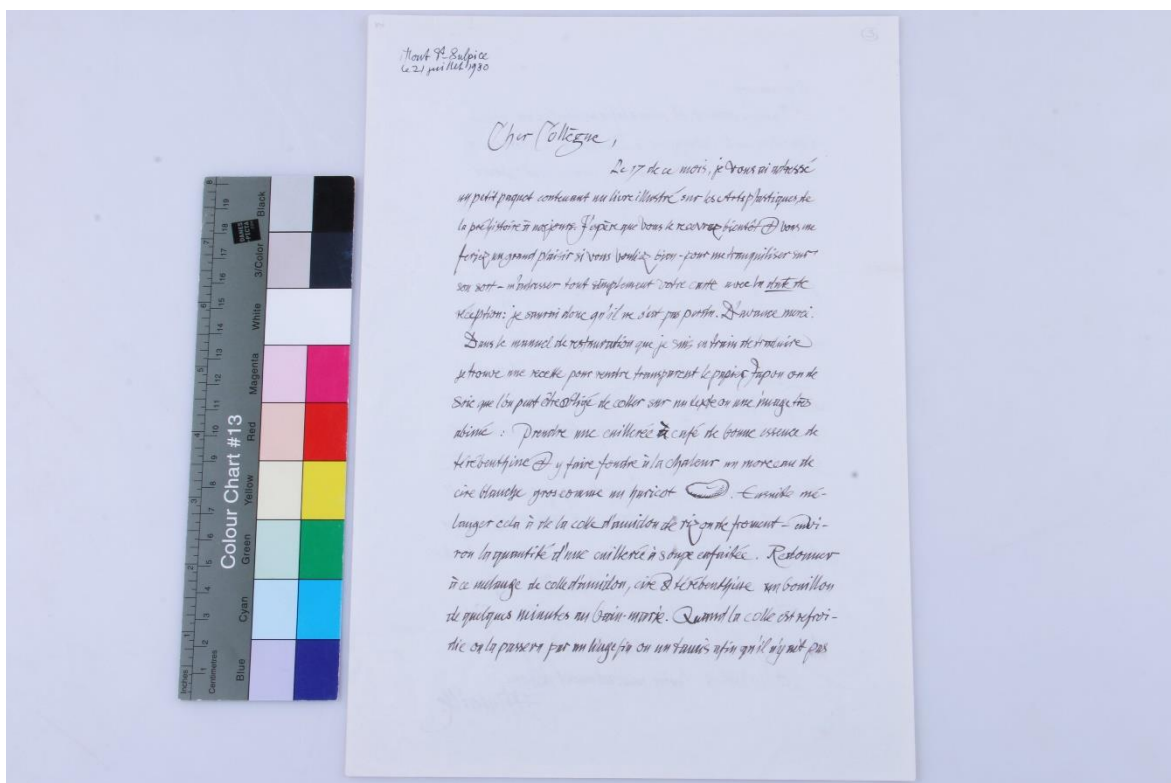 Mont St-Sulpice
le 21 juillet 1980
Cher Collègue,
Le 17 de ce mois, je vous ai adressé
un petit paquet contenant un livre illustré sur les Arts plastiques de
la préhistoire à nos jours. J'espère que vous le recevrez bientôt & vous me
feriez un grand plaisir si vous vouliez bien - pour me tranquiliser sur
son sort - m'adresser tout simplement votre carte avec la date de
réception: je saurai donc qu'il ne s'est pas perdu. D'avance merci.
Dans le manuel de restauration que je suis en train de traduire
je trouve une recette pour rendre transparent le papier Japon ou de
soie que l'on peut être obligé de coller sur un texte ou une image très
abimé : Prendre une cuillerée à café de bonne essence de
térébenthine & y faire fondre à la chaleur un morceau de
cire blanche gros comme un haricot . Ensuite mé-
langer cela à de la colle d'amidon de riz ou de froment - envi-
ron la quantité d'une cuillerée à soupe enfaitée. Redonner
à ce mélange de colle d'amidon, cire & térébenthine un bouillon
de quelques minutes au bain-marie. Quand la colle est refroi-
die on la passera par un linge fin ou un tamis afin qu'il n'y ait pas
Colour Chart #13
Blue
Cyan
Green
Yellow
Red
Magenta
White
3/Color
Black
Inches
Centimetres